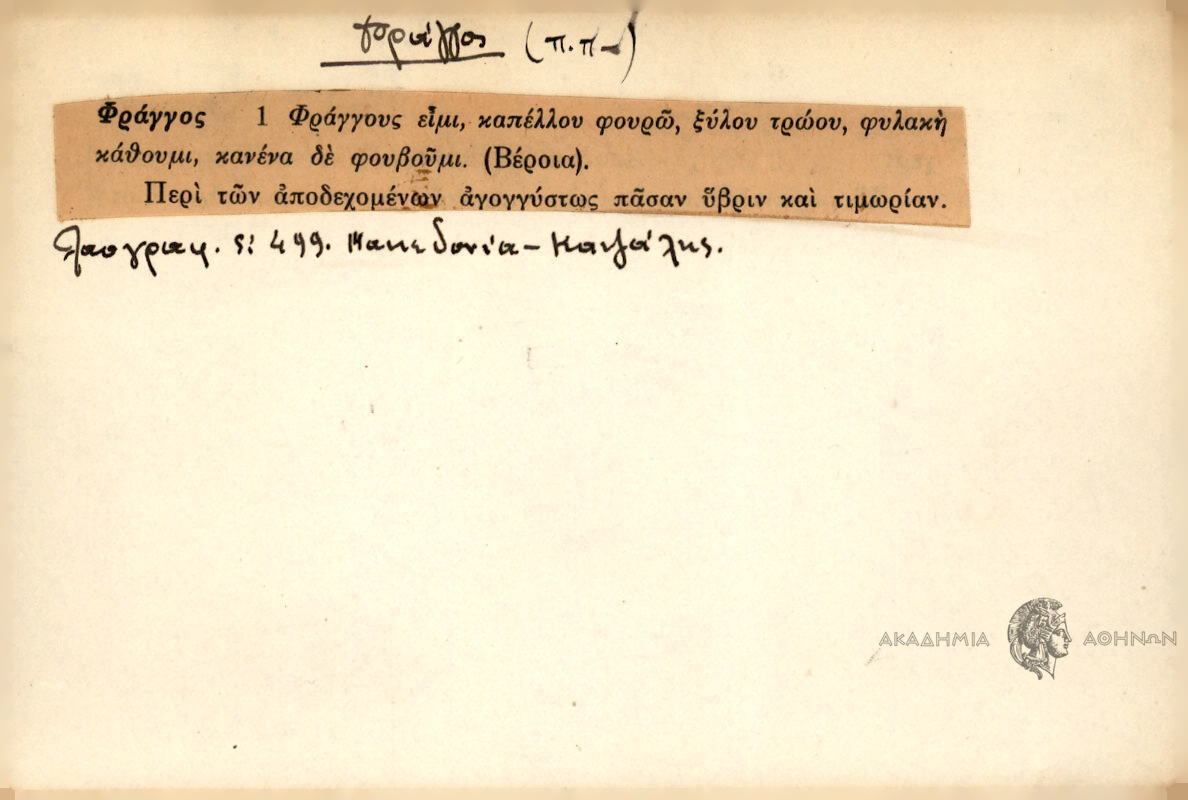 Φράγγος (π.π-)
Φράγγος 1 Φράγγους εἶμι, καπέλλου φουρῶ, ξύλου τρώου, φυλακὴ
κάθουμι, κανένα δὲ φουβοῦμι. (Βέροια).
Περὶ τῶν ἀποδεχομένων ἀγογγύστως πᾶσαν ὕβριν καὶ τιμωρίαν.
Λαογραφ. ς: 499. Μακεδονία -
ΑΚΑΔΗΜΙΑ ΑΘΗΝΩΝ